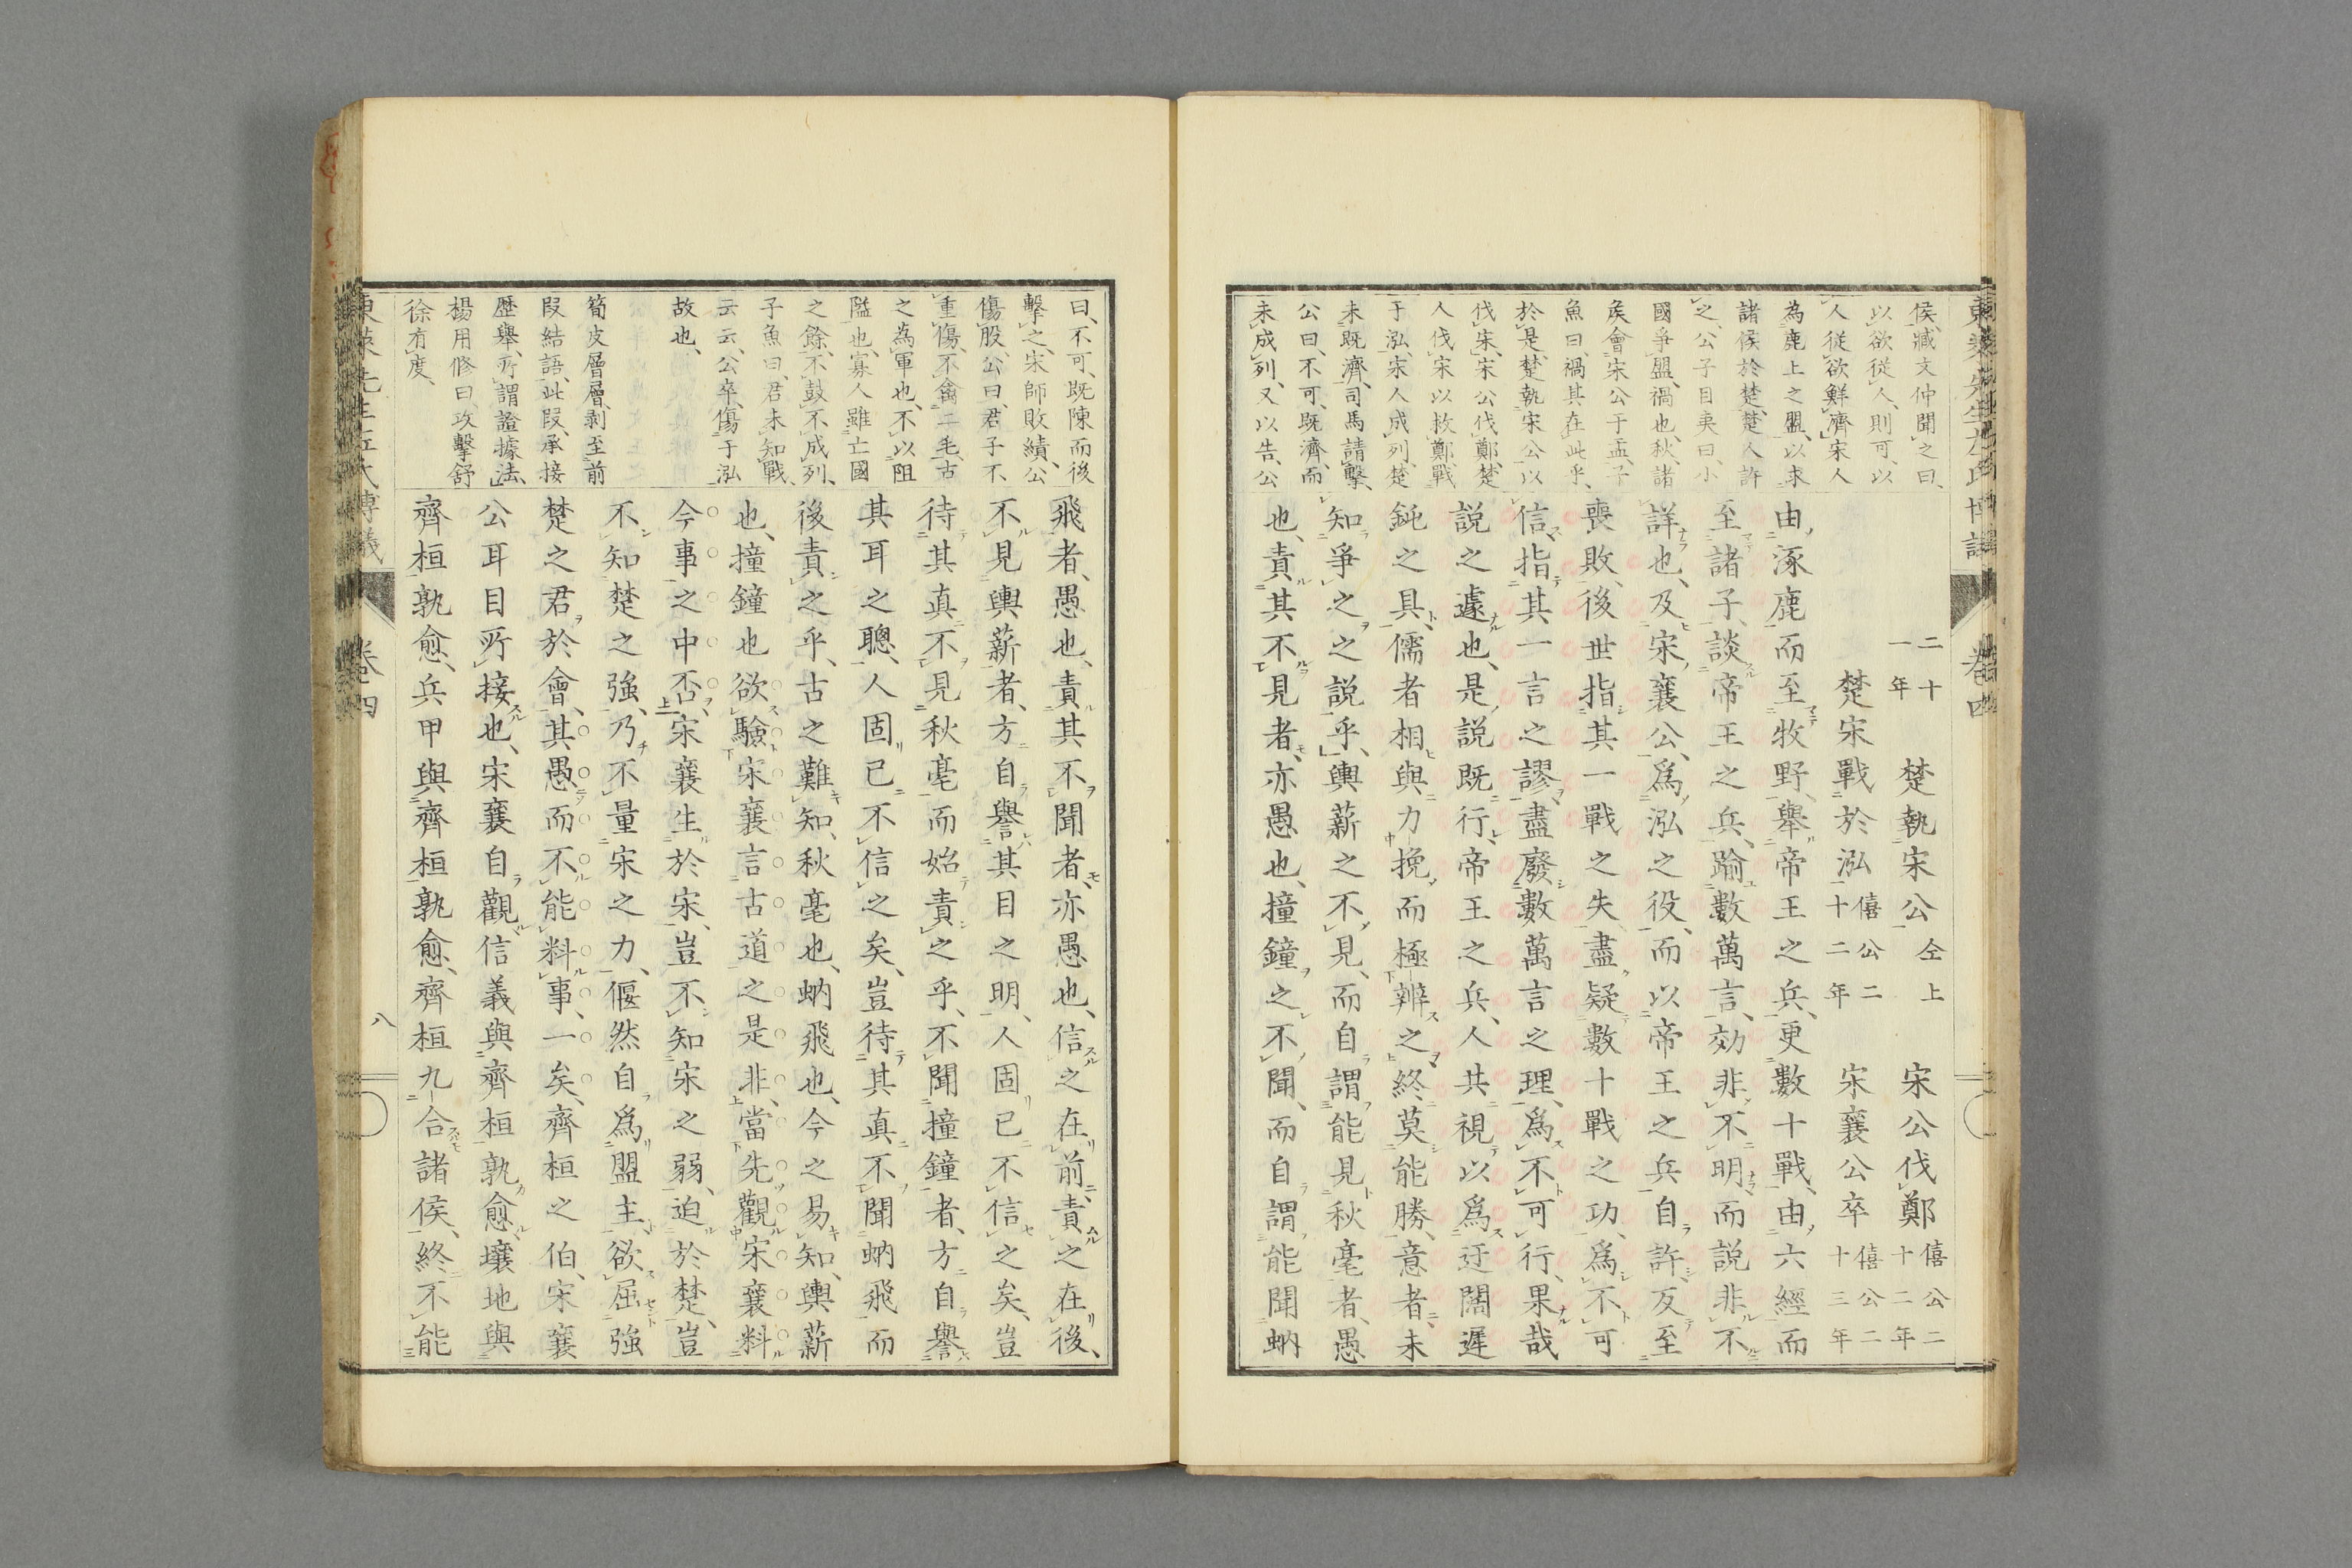 東萊先生左氏博議 卷四
侯、臧文仲聞之曰、
以欲從人、則可、以
人從欲鮮濟、宋人
為鹿上之盟、以求
諸侯於楚、楚人許
之、公子目夷曰、小
國爭盟、禍也、秋諸
矦會宋公于盂、子
魚曰、禍其在此乎、
於是楚執宋公以
伐宋、宋公伐鄭、楚
人伐宋以救鄭、戰
于泓、宋人成列、楚
未既濟、司馬請擊、
公曰、不可、既濟、而
未成列、又以告、公
二十一年 楚執宋公仝上 宋公伐鄭僖公二十二年
楚宋戰於泓僖公二十二年 宋襄公卒僖公二十三年
由涿鹿而至牧野、舉帝王之兵、更數十戰、由六經而
至諸子、談帝王之兵、踰數萬言、効非不明、而說非不
詳也、及宋襄公、爲泓之役、而以帝王之兵自許、反至
喪敗、後世指其一戰之失、盡疑數十戰之功、爲不可
信、指其一言之謬、盡廢數萬言之理、爲不可行、果哉
說之遽也、是說既行、帝王之兵、人共視以爲迂闊遲
鈍之具、儒者相與力挽而極辨之、終莫能勝、意者、未
知爭之之說乎、輿薪之不見、而自謂能見秋毫者、愚
也、責其不見者、亦愚也、撞鐘之不聞、而自謂能聞蚋
曰、不可、既陳而後
擊之、宋師敗績、公
傷股、公曰、君子不
重傷、不禽二毛、古
之為軍也、不以阻
隘也、寡人雖亡國
之餘、不鼓不成列、
子魚曰、君未知戰、
云云、公卒、傷于泓
故也、
筍皮層層、剥至前
段結語、此段、承接
歴舉、所謂證據法、
楊用修曰、攻擊舒
徐有度、
飛者、愚也、責其不聞者、亦愚也、信之在前、責之在後、
不見輿薪者、方自譽其目之明、人固已不信之矣、豈
待其真不見秋毫而始責之乎、不聞撞鐘者、方自譽
其耳之聰、人固已不信之矣、豈待其真不聞蚋飛而
後責之乎、古之難知、秋毫也、蚋飛也、今之易知、輿薪
也、撞鐘也、欲驗宋襄言古道之是非、當先觀宋襄料
今事之中否、宋襄生於宋、豈不知宋之弱、迫於楚、豈
不知楚之強、乃不量宋之力、偃然自爲盟主、欲屈強
楚之君於會、其愚而不能料事、一矣、齊桓之伯、宋襄
公耳目所接也、宋襄自觀信義與齊桓孰愈、壤地與
齊桓孰愈、兵甲與齊桓孰愈、齊桓九合諸侯、終不能
東萊先生左氏博議 卷四 八